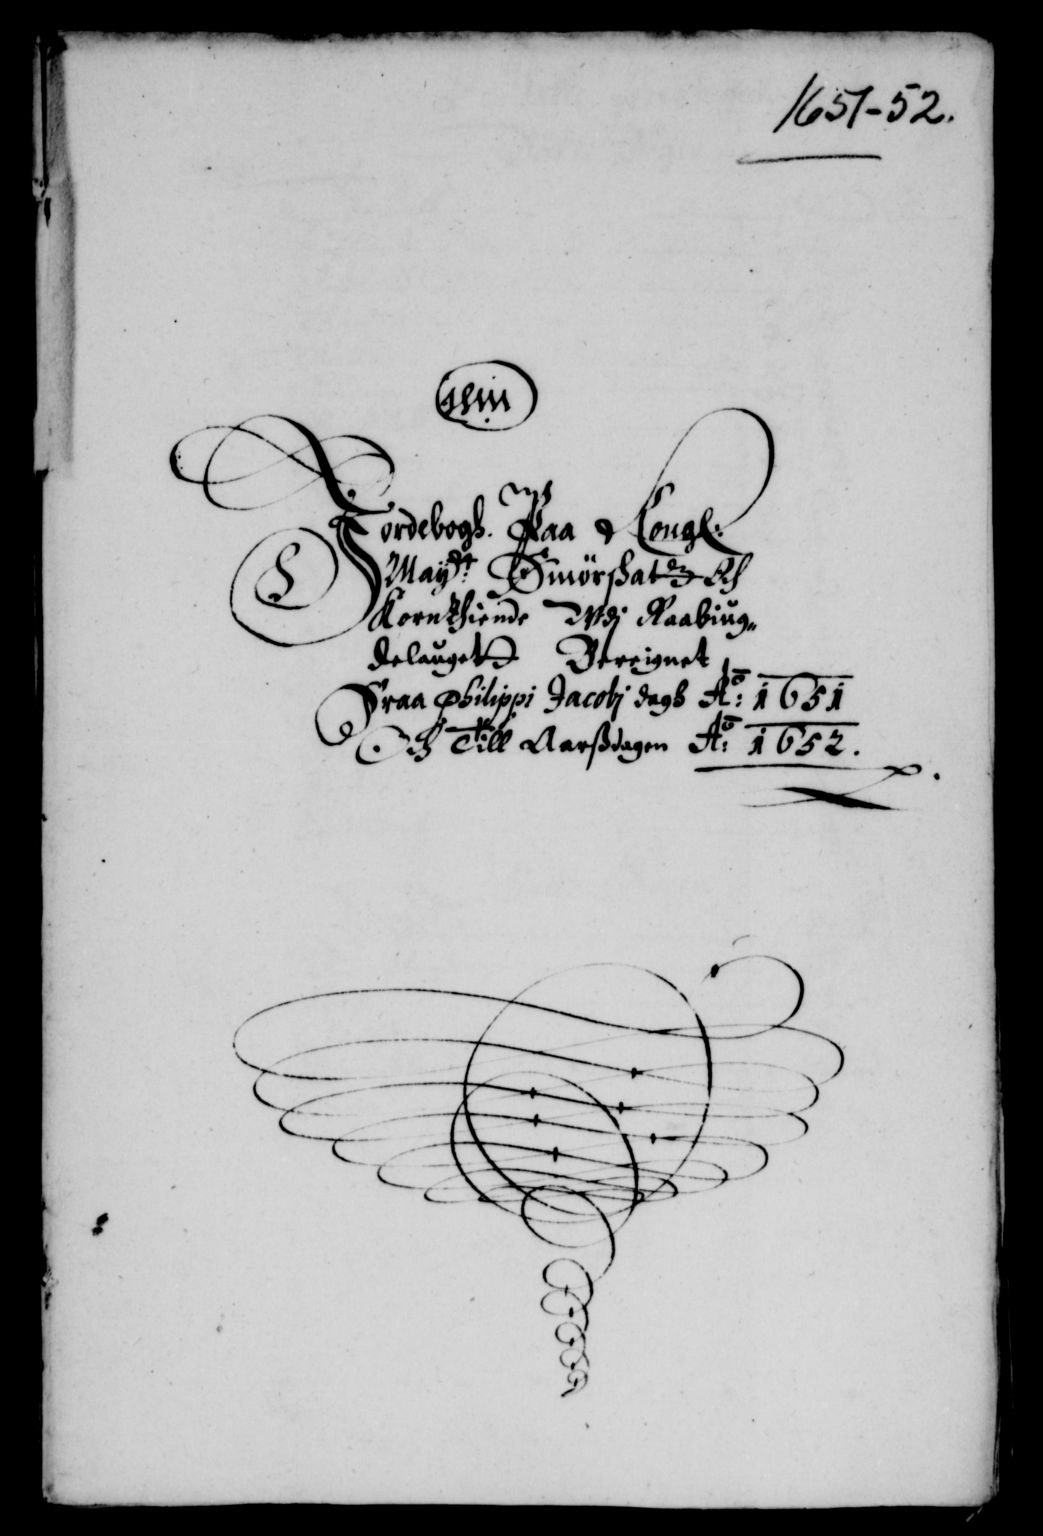 1651-52.
Jordebogh. Paa Kongl:
Maytt: Smörskat och
Kornthiende Vdj Raabiug„
delauget Bereignet
Fraa Philippi Jacobj dagh Ao: 1651
Och Till Aarßdagen Ao: 1652.